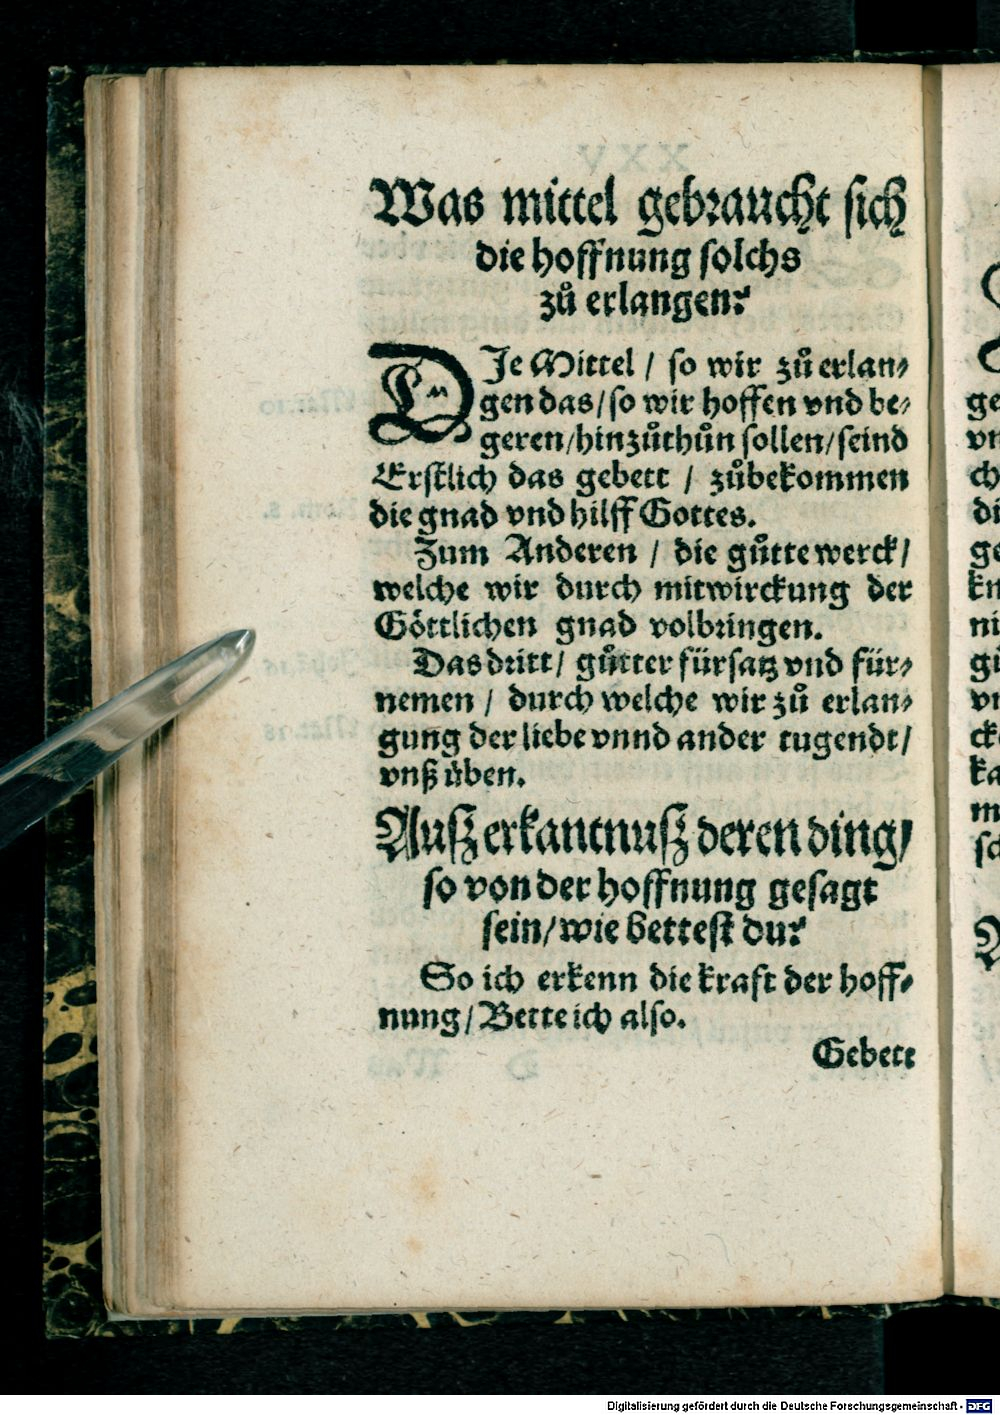 Was mittel gebraucht sich
die hoffnung solchs
zů erlangen?
DJe Mittel / so wir zů erlan⸗
gen das / so wir hoffen vnd be⸗
geren / hinzůthůn sollen / seind
Erstlich das gebett / zůbekommen
die gnad vnd hilff Gottes.
Zum Anderen / die gůtte werck /
welche wir durch mitwirckung der
Göttlichen gnad volbringen.
Das dritt / gůtter fürsatz vnd für⸗
nemen / durch welche wir zů erlan⸗
gung der liebe vnnd ander tugendt /
vnß üben.
Ausz erkantnusz deren ding /
so von der hoffnung gesagt
sein / wie bettest du?
So ich erkenn die kraft der hoff⸗
nung / Bette ich also.
Gebett
Digitalisierung gefördert durch die Deutsche Forschungsgemeinschaft - DFG